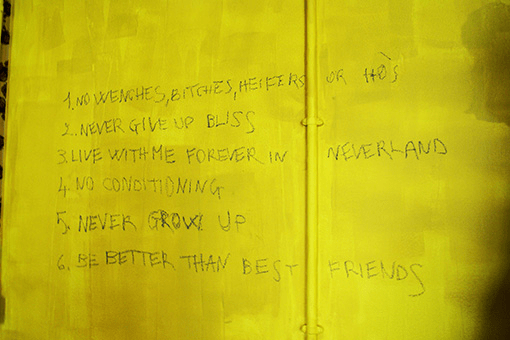 1. NO WENCHES, BITCHES, HEIFERS OR HO'S
2. NEVER GIVE UP BLISS
3. LIVE WITH ME FOREVER IN NEVERLAND
4. NO CONDITIONING
5. NEVER GROW UP
6. BE BETTER THAN BEST FRIENDS